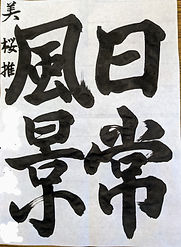 日常
風景
美桜推